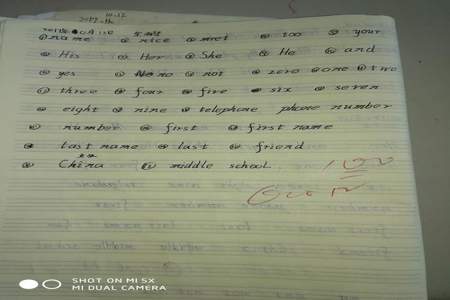 name nice meet too your
His Her She He and
yes no not zero one two
three four five six seven
eight nine telephone phone number
number first first name
last name last friend
China middle school
100
SHOT ON MI 5X
MI DUAL CAMERA